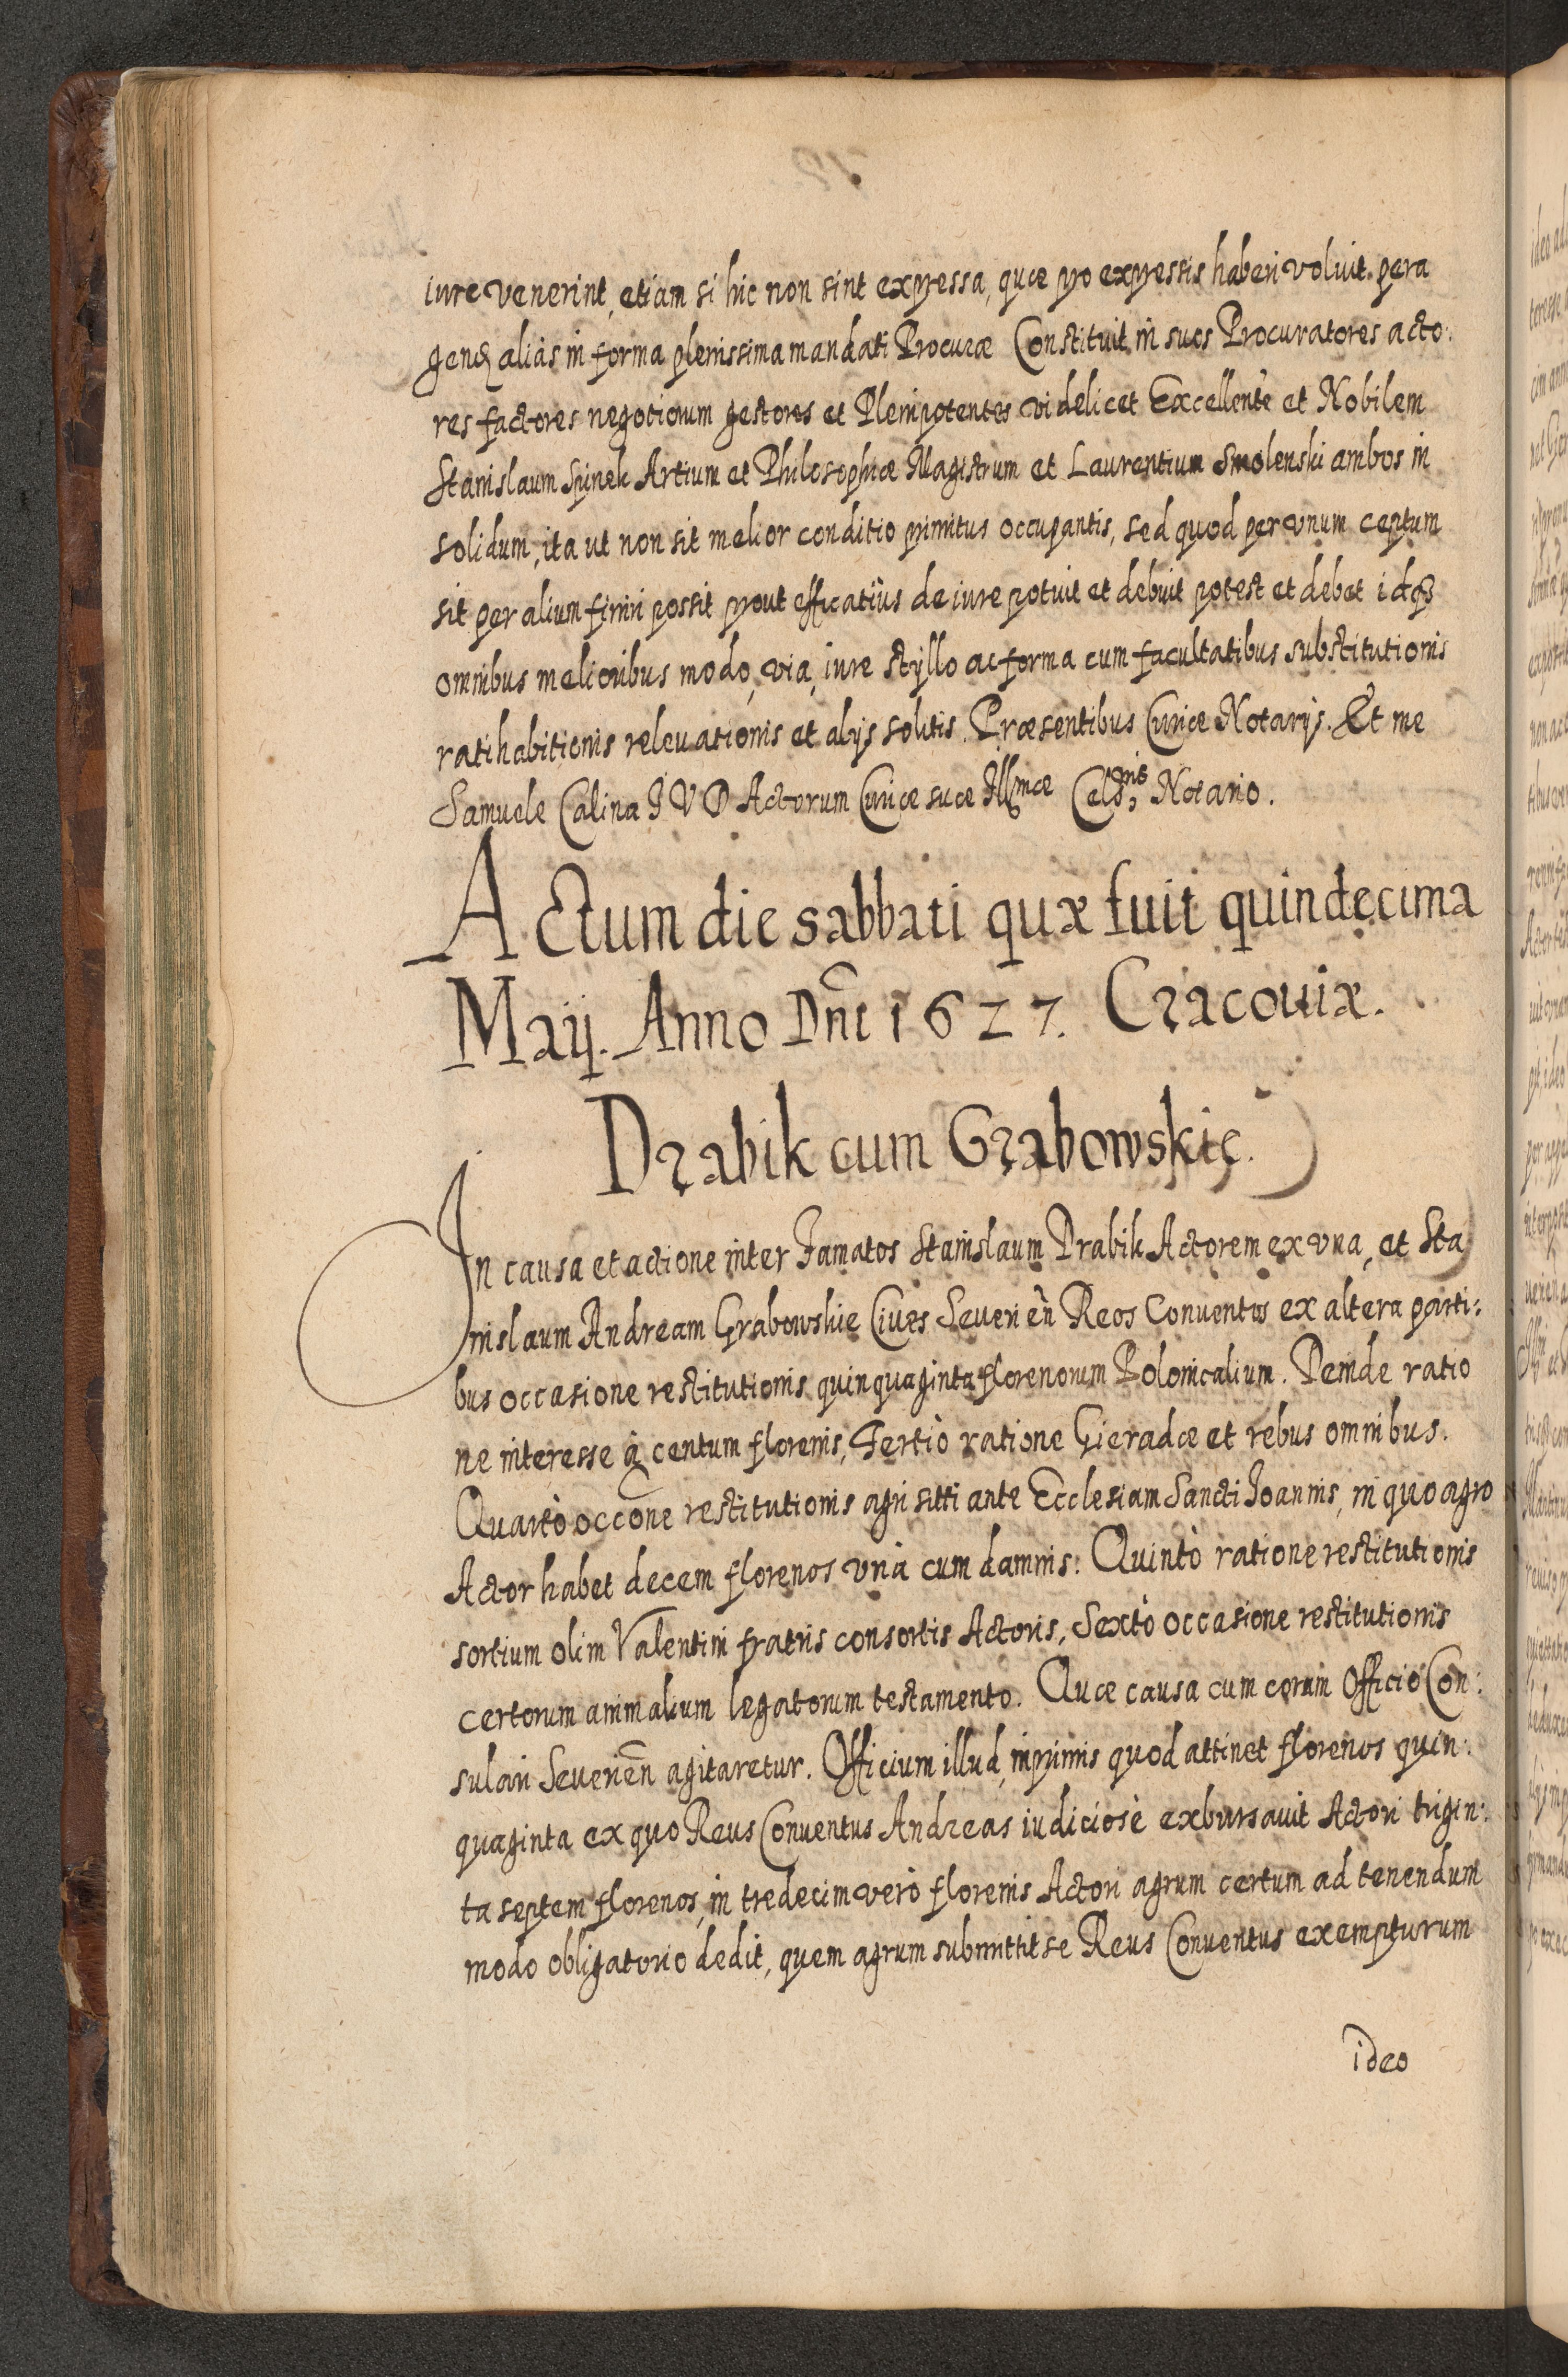 iure venerint, etiam si hic non sint expressa, quæ pro expressis haberi voluit pera
gend alias in forma plenissima mandati Procuræ Constituit in suos Procuratores acto:
res factores negotiorum gestores et Plenipotentes videlicet Excellente et Nobilem
Stanislaum Spinek Artium et Philosophiæ Magistrum et Laurentium Smolenski ambos in
solidum, ita ut non sit melior conditio primitus occupantis, sed quod per vnum ceptum
sit per alium finiri possit prout efficatiùs de iure potuit et debuit potest et debet idq3
omnibus melioribus modo, via, iure styllo ac forma cum facultatibus substitutionis
ratihabitionis releuationis et alijs solitis. Præsentibus Curiæ Notarijs. Et me
Samuele Calina I V D Actorum Curiæ suæ Illmæ Celsnis Notario.
Actum die sabbati quæ fuit quindecima
Maij. Anno Dni 1627. Cracouiæ.
Drabik cum Grabowskie.
In causa et actione inter Famatos Stanislaum Drabik Actorem ex vna, et Sta
nislaum Andream Grabowskie Ciues Seuerień Reos Conuentos ex altera parti:
bus occasione restitutionis quinquaginta florenorum Polonicalium. Deinde ratio
ne interesse à centum florenis, Tertiò ratione Gieradæ et rebus omnibus.
Quartò occone restitutionis agri sitti ante Ecclesiam Sancti Joannis, in quo agro
Actor habet decem florenos vnà cum damnis: Quintò ratione restitutionis
sortium olim Valentini fratris consortis Actoris, Sextò occasione restitutionis
certorum animalium legatorum testamento. Quæ causa cum coram Officio Con:
sulari Seuerień agitaretur. Officium illud, inprimis quod attinet florenos quin:
quaginta ex quo Reus Conuentus Andreas iudiciosè exbursauit Actori trigin:
ta septem florenos, in tredecim verò florenis Actori agrum certum ad tenendum
modo obligatorio dedit, quem agrum submittit se Reus Conuentus exempturum
ideo